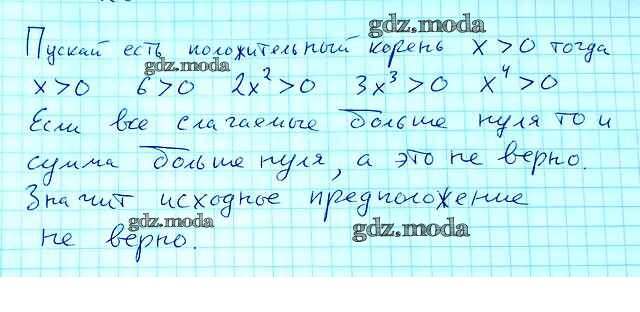 gdz.moda
Пускай есть положительный корень x > 0 тогда
gdz.moda
x > 0 6 > 0 2x² > 0 3x³ > 0 x⁴ > 0
Если все слагаемые больше нуля то и
сумма больше нуля, а это не верно.
Значит исходное предположение
gdz.moda
gdz.moda
не верно.